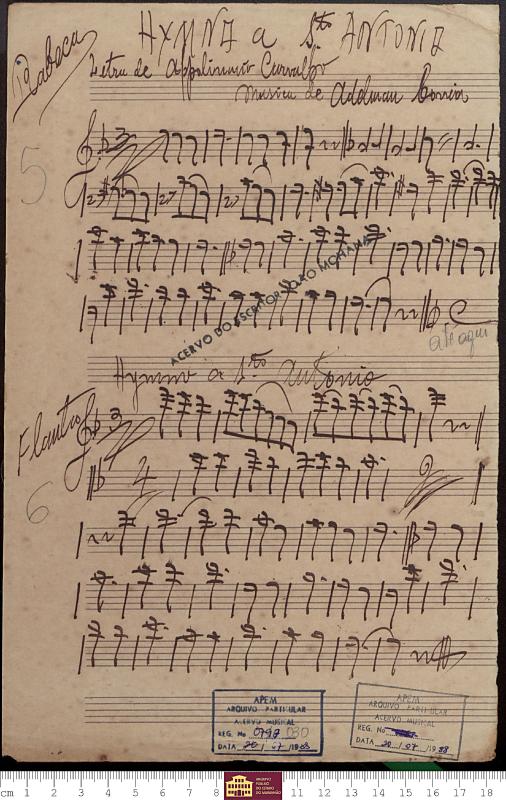 HYMNO a Sto ANTONIO
Rabeca
Letra de Appolinario Carvalho
Musica de Adelman Correia
5
3
ACERVO DO ESCRITOR JOÃO MOHANA
até aqui
Hymno a Sto Antonio
Flauta
3
6
APEM
ARQUIVO PARTICULAR
ACERVO MUSICAL
REG. No 0797 030
DATA 20 / 07 /1988
APEM
ARQUIVO PARTICULAR
ACERVO MUSICAL
REG. No
DATA 20 / 07 /1988
ARQUIVO
PÚBLICO
DO ESTADO
DO MARANHÃO
cm 1 2 3 4 5 6 7 8 11 12 13 14 15 16 17 18